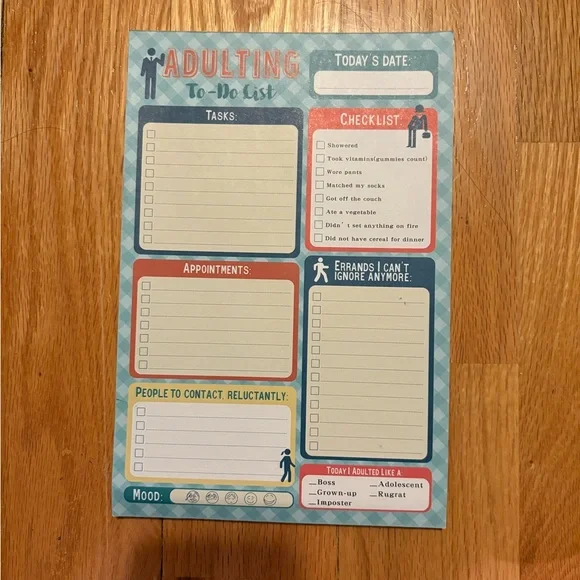 ADULTING
To-Do List
TODAY'S DATE:
TASKS:
CHECKLIST:
Showered
Took vitamins(gummies count)
Wore pants
Matched my socks
Got off the couch
Ate a vegetable
Didn't set anything on fire
Did not have cereal for dinner
APPOINTMENTS:
ERRANDS I CAN'T
IGNORE ANYMORE:
PEOPLE TO CONTACT, RELUCTANTLY:
MOOD:
TODAY I ADULTED LIKE A
Boss
Grown-up
Imposter
Adolescent
Rugrat